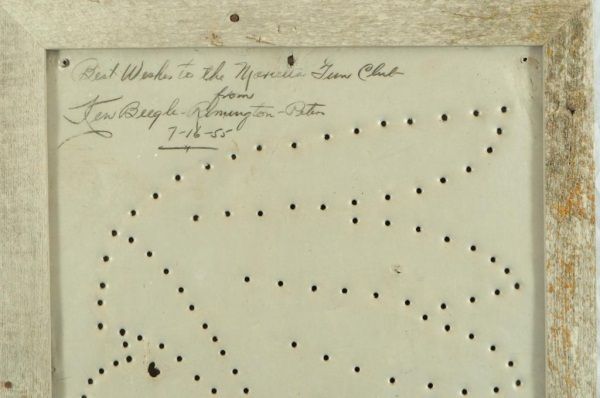 Best Wishes to the Marietta Gun Club
from
Ken Beegle - Remington - Peters
7-16-55